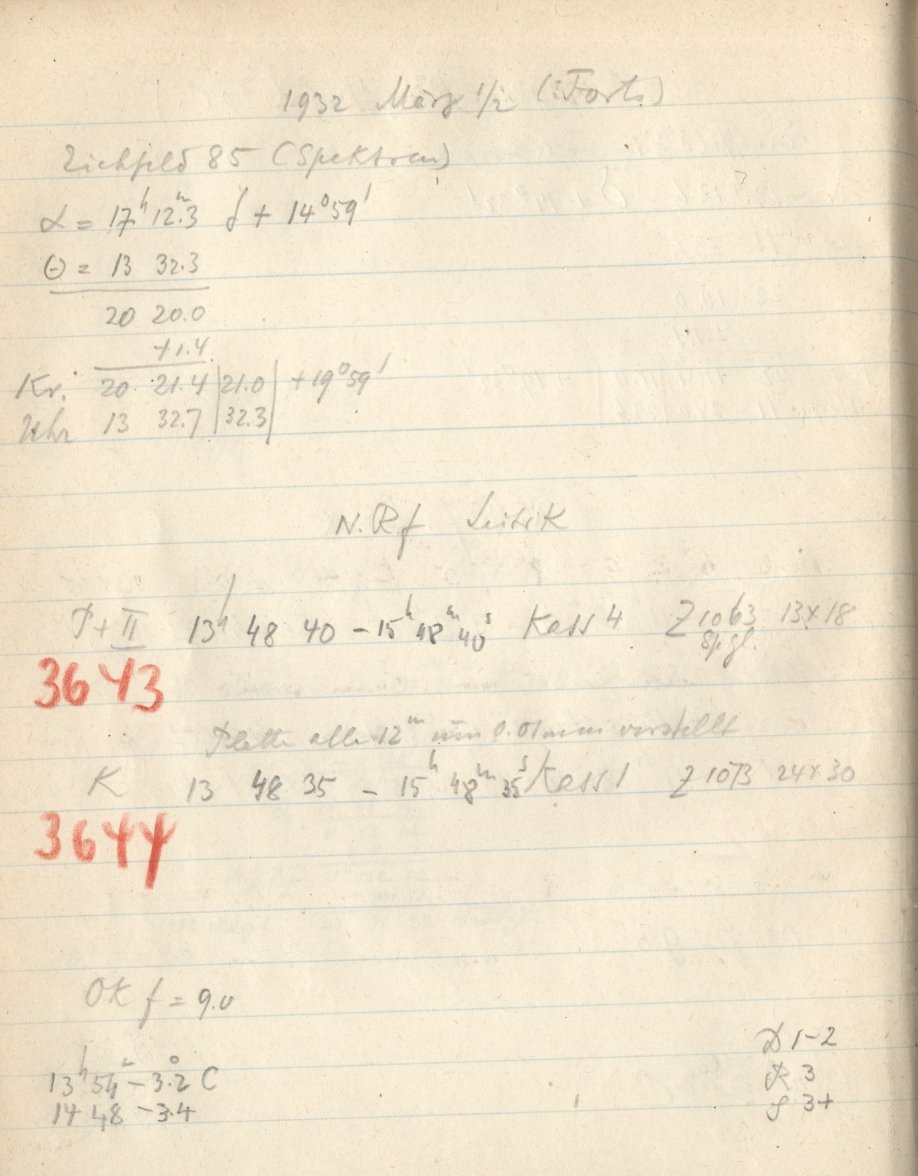 1932 März 1/2 (Forts.)
Eichfeld 85 (Spektren)
α = 17ʰ 12ᵐ.3 δ + 14°59'
Θ = 13 32.3
20 20.0
+1.4
Kr. 20 21.4 | 21.0 | +19°59'
Uhr 13 32.7 | 32.3 |
N. Rf
P+II 13ʰ 48 40 – 15ʰ 48ᵐ 40ˢ Kass 4 Z 1063 13x18
Spgl.
3643
Platte alle 12ᵐ um 0.01mm verstellt
K 13 48 35 – 15ʰ 48ᵐ 35ˢ Kass 1 Z 1073 24x30
3644
OK f = 9.0
13ʰ 54ᵐ – 3°.2 C
14 48 – 3.4
D 1-2
R 3
S 3+